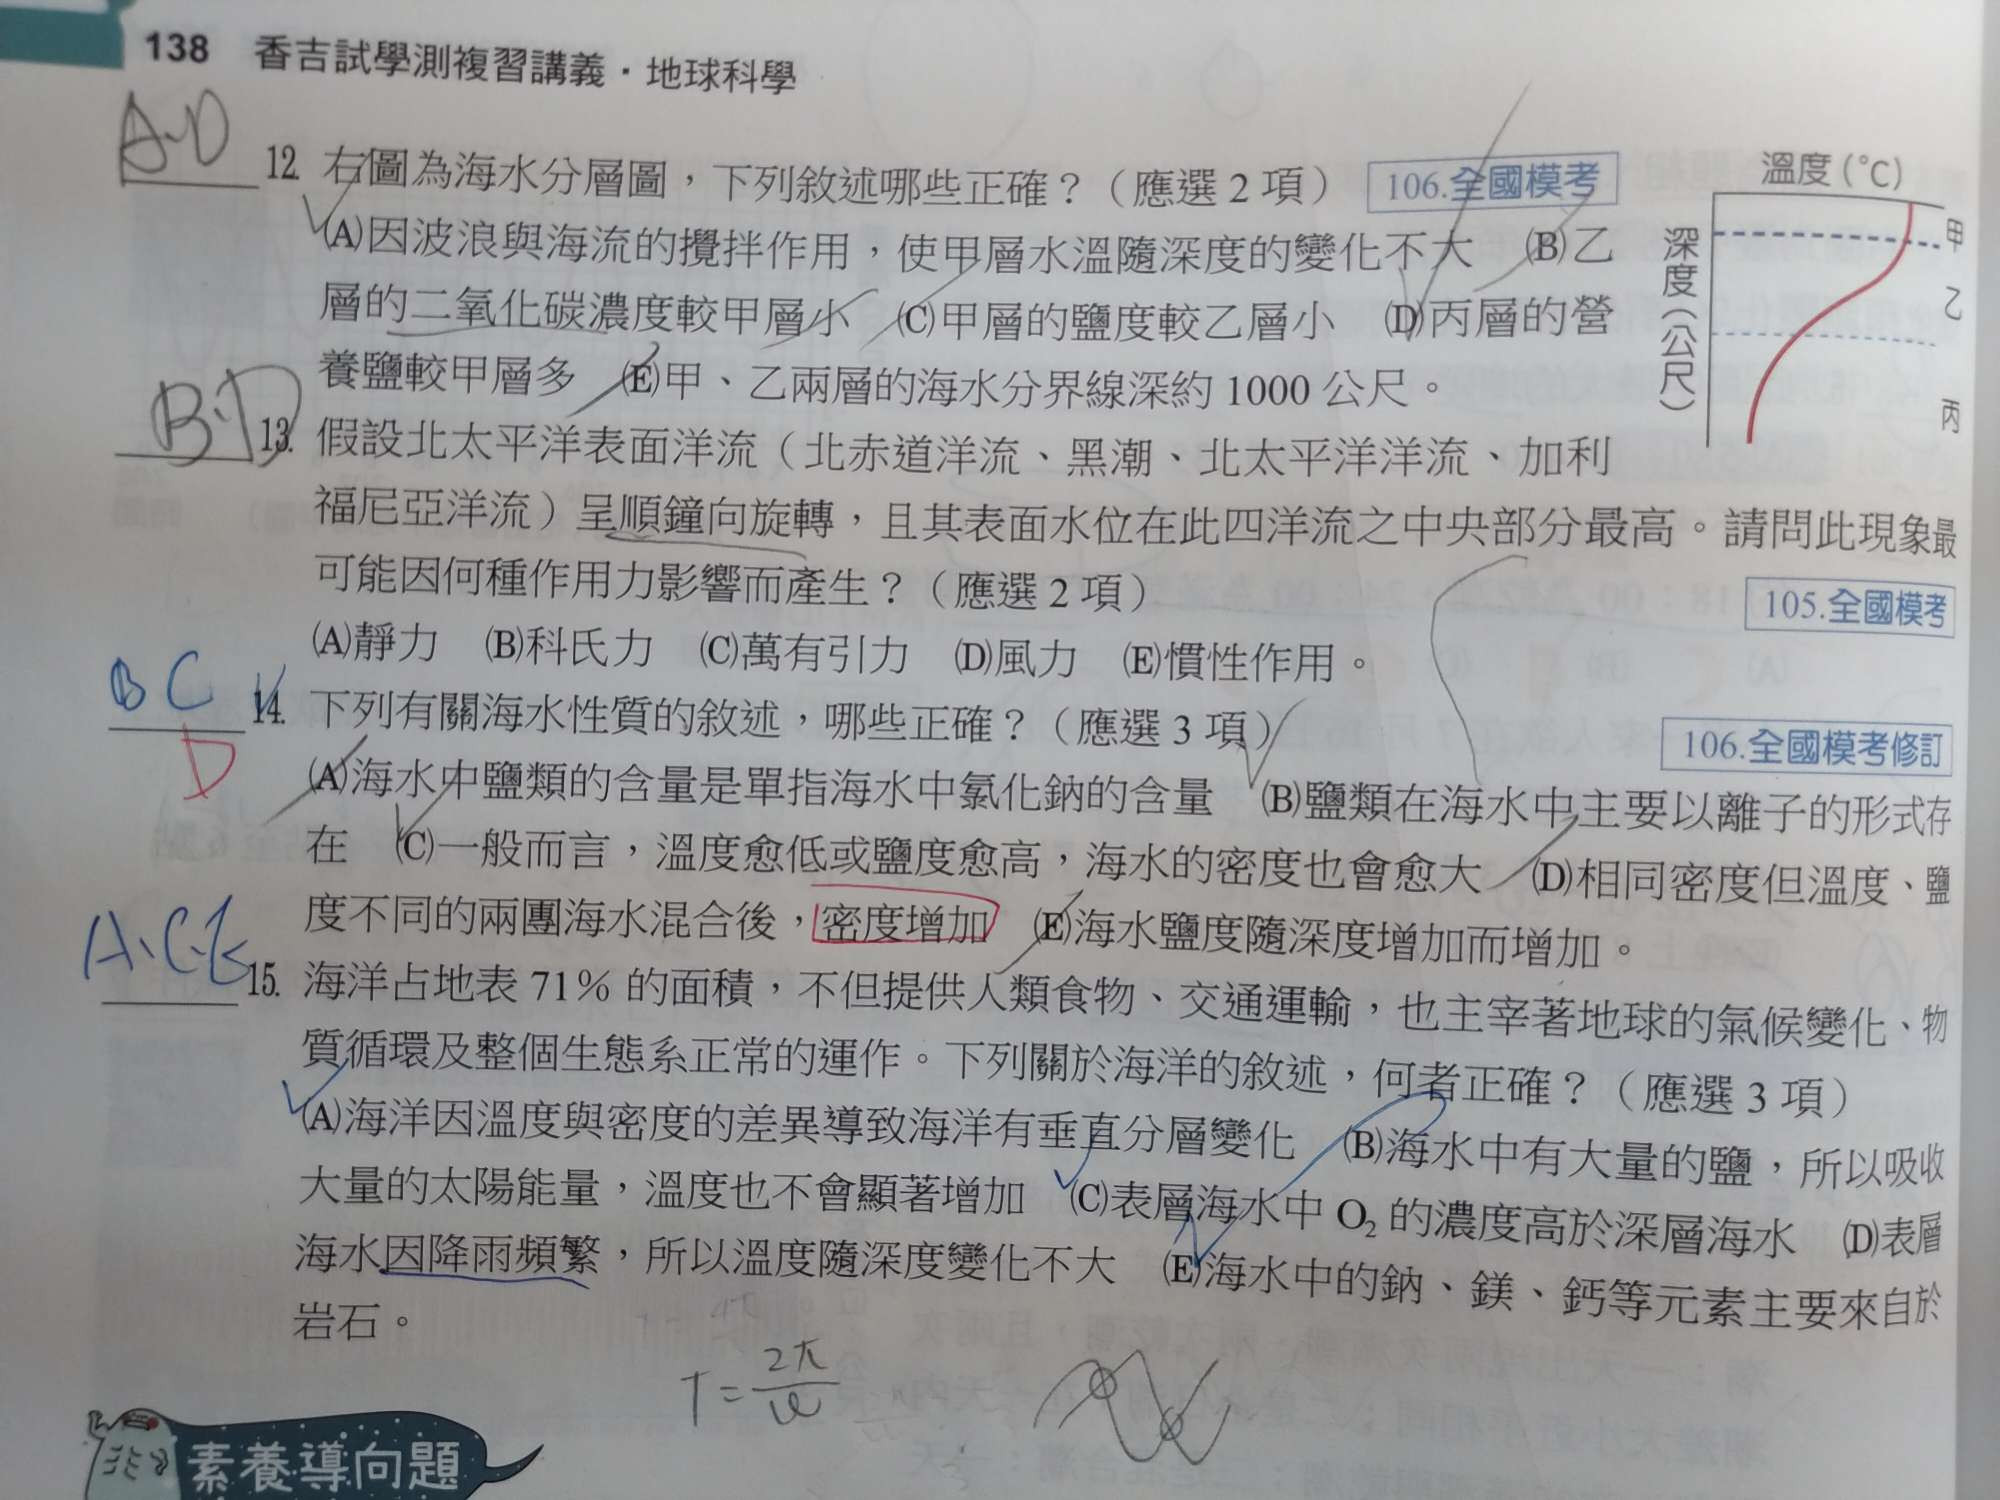 138 香吉試學測複習講義・地球科學
A、D
12. 右圖為海水分層圖，下列敘述哪些正確？（應選2項） 106.全國模考
(A)因波浪與海流的攪拌作用，使甲層水溫隨深度的變化不大 (B)乙
層的二氧化碳濃度較甲層小 (C)甲層的鹽度較乙層小 (D)丙層的營
養鹽較甲層多 (E)甲、乙兩層的海水分界線深約1000公尺。
溫度(°C)
深度(公尺)
甲
乙
丙
B、D
13. 假設北太平洋表面洋流（北赤道洋流、黑潮、北太平洋洋流、加利
福尼亞洋流）呈順鐘向旋轉，且其表面水位在此四洋流之中央部分最高。請問此現象最
可能因何種作用力影響而產生？（應選2項） 105.全國模考
(A)靜力 (B)科氏力 (C)萬有引力 (D)風力 (E)慣性作用。
B C
D
14. 下列有關海水性質的敘述，哪些正確？（應選3項） 106.全國模考修訂
(A)海水中鹽類的含量是單指海水中氯化鈉的含量 (B)鹽類在海水中主要以離子的形式存
在 (C)一般而言，溫度愈低或鹽度愈高，海水的密度也會愈大 (D)相同密度但溫度、鹽
度不同的兩團海水混合後，密度增加 (E)海水鹽度隨深度增加而增加。
A、C、E
15. 海洋占地表71%的面積，不但提供人類食物、交通運輸，也主宰著地球的氣候變化、物
質循環及整個生態系正常的運作。下列關於海洋的敘述，何者正確？（應選3項）
(A)海洋因溫度與密度的差異導致海洋有垂直分層變化 (B)海水中有大量的鹽，所以吸收
大量的太陽能量，溫度也不會顯著增加 (C)表層海水中O₂的濃度高於深層海水 (D)表層
海水因降雨頻繁，所以溫度隨深度變化不大 (E)海水中的鈉、鎂、鈣等元素主要來自於
岩石。
素養導向題